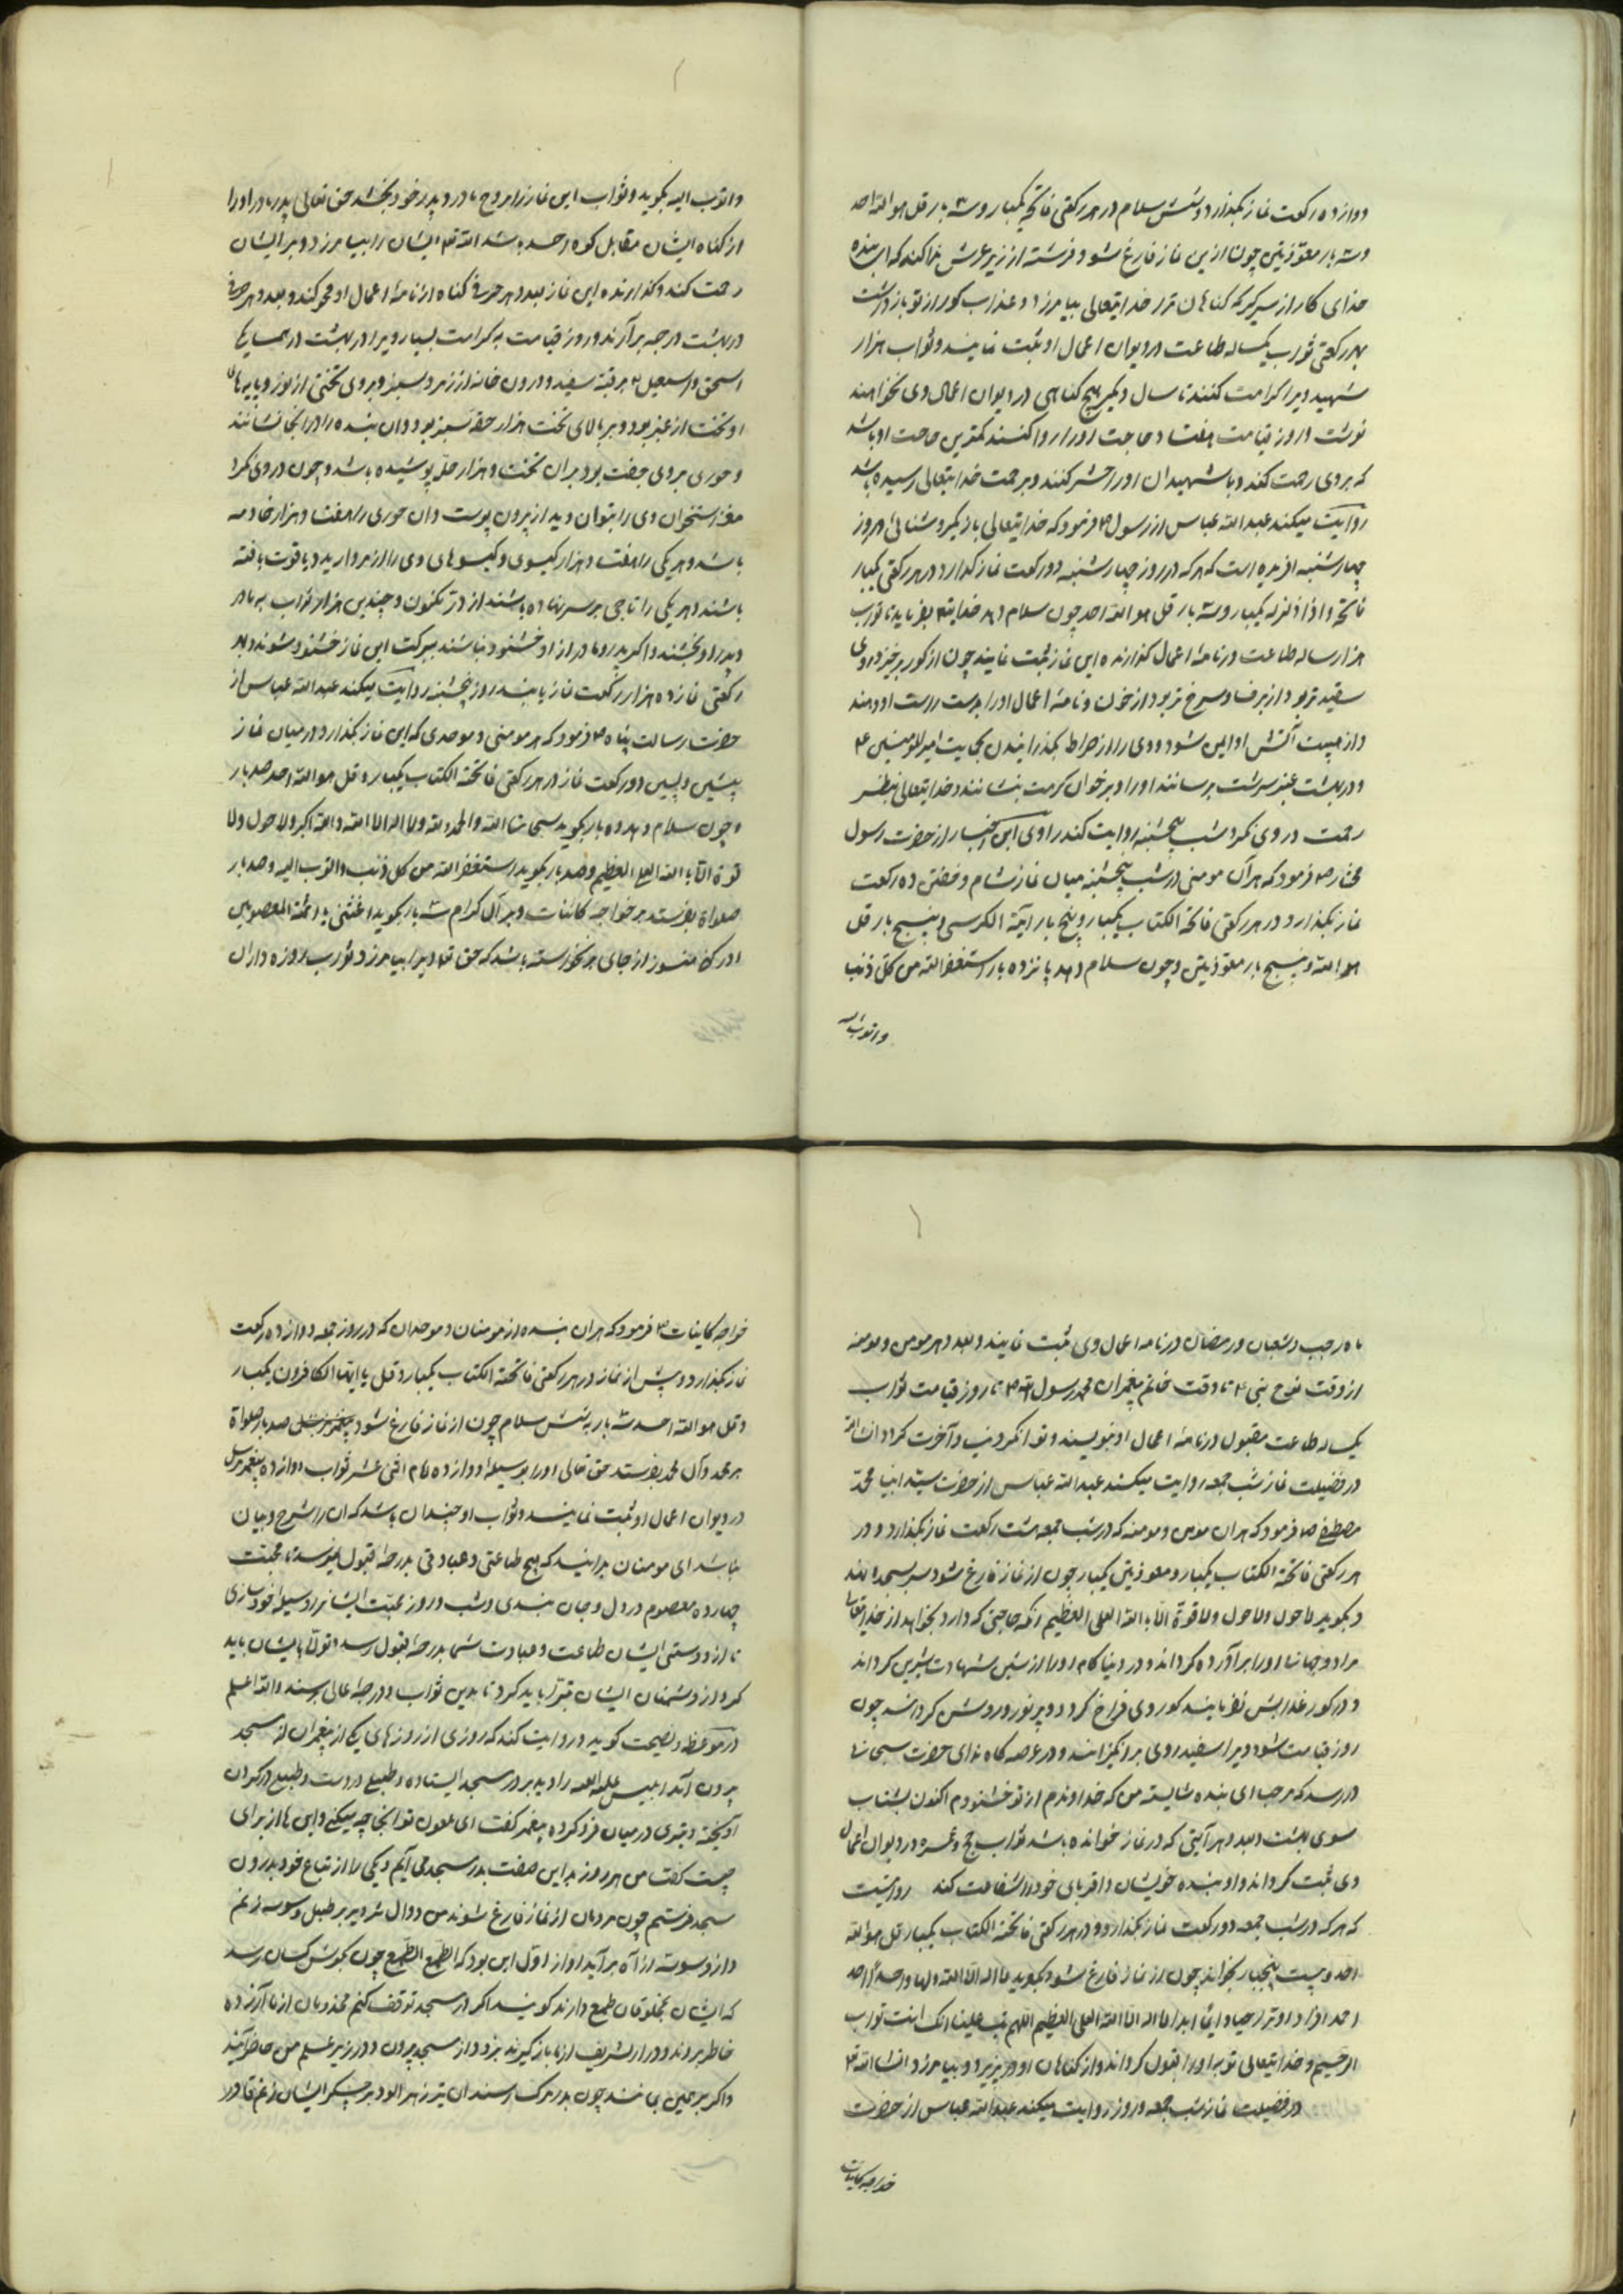 دوازده رکعت نماز بگذارد و بشش سلام در هر رکعتی فاتحه یکبار و سه بار قل هو الله احد
و سه بار معوذتین چون ازین نماز فارغ شود فرشته از زیر عرش ندا کند که ای بنده
خدای کار از سر گیر که گناهان ترا خدایتعالی بیامرزد و عذاب گور از تو بازداشت
بهر رکعتی ثواب یکساله طاعت در دیوان اعمال او ثبت نمایند و ثواب هزار
شهید ویرا کرامت کنند تا سال دیگر هیچ گناهی در دیوان اعمال وی نخواهند
نوشت و روز قیامت هفتاد حاجت او را روا کنند کمترین حاجت او باشد
که بروی رحمت کنند و با شهیدان او را حشر کنند و برحمت خدایتعالی رسیده باشد
روایت میکند عبدالله عباس از رسول ص فرمود که خدایتعالی روشنائی روز
چهارشنبه آفریده است که هر که در روز چهارشنبه دو رکعت نماز گذارد در هر رکعتی یکبار
فاتحه و اذا زلزله یکبار و سه بار قل هو الله احد چون سلام دهد خدایتع بفرماید تا ثواب
هزار ساله طاعت در نامه اعمال گذارنده این نماز ثبت نمایند چون از گور برخیزد روی
سفید تر بود از برف و سرخ تر بود از خون و نامه اعمال او را بدست راست او دهند
و از هیبت آتش او ایمن شود و وی را از صراط بگذرانیدن بحمایت امیرالمؤمنین ع
و در بهشت عنبر سرشت برسانند او را و بر خوان کرمت بنشانند و خدایتعالی بنظر
رحمت در وی نگرد شب پنجشنبه روایت کند راوی این اخبار از حضرت رسول
مختار ص فرمود که هر آن مومنی در شب پنجشنبه میان نماز شام و خفتن ده رکعت
نماز بگذارد و در هر رکعتی فاتحة الکتاب یکبار و پنج بار آیة الکرسی و پنج بار قل
هو الله و پنج بار معوذتین و چون سلام دهد پانزده بار استغفرالله من کل ذنب
و اتوب الیه
و اتوب الیه بگوید و ثواب این نماز را بروح مادر و پدر خود بخشد حق تعالی پدر و مادر او را
از گناه ایشان مقابل کوه احد باشد الله تع ایشان را بیامرزد و بر ایشان
رحمت کند و گذارنده این نماز بعدد هر حرفی گناه از نامه اعمال او محو کند و بعدد هر حرفی
در بهشت درجه برآرند و روز قیامت به کرامت بسیار ویرا در بهشت در همسایگی
اسحق و اسمعیل ع برقبه سفید و درون خانه از زمرد سبز و بروی تختی از نور و پایه های
او تخت از عنبر بود و بر بالای تخت هزار حقه سبز بود و ان بنده را در آنجا نشانند
و حوری بروی جفت بود بران تخت و هزار حله پوشیده باشد و چون در وی نگرد
مغز استخوان وی را بتوان دید از بیرون پوست و ان حوری را هفتاد هزار خادمه
باشد و هر یکی را هفتاد هزار گیسوی و گیسوهای وی را از مروارید و یاقوت بافته
باشند و هر یکی را تاجی بر سر نهاده باشند از در مکنون و چندین هزار ثواب به مادر
و پدر او بخشند و اگر پدر و مادر از او خشنود نباشند ببرکت این نماز خشنود شوند و بهر
رکعتی نماز ده هزار رکعت نماز یابند روز پنجشنبه روایت میکند عبدالله عباس از
حضرت رسالت پناه ص فرمود که هر مومنی و موحدی که این نماز بگذارد در میان نماز
پیشین و پسین دو رکعت نماز در هر رکعتی فاتحة الکتاب یکبار و قل هو الله احد صد بار
و چون سلام دهد ده بار بگوید سبحان الله و الحمدلله و لا اله الا الله و الله اکبر و لا حول و لا
قوة الا بالله العلی العظیم و صد بار بگوید استغفر الله من کل ذنب و اتوب الیه و صد بار
صلواة بفرستد بر خواجه کائنات و بر آل کرام سه بار بگوید اغثنی یا ائمة المعصومین
او را که هنوز از جای بر نخواسته باشد که حق تع ویرا بیامرزد و ثواب روزه داران
ماه رجب و شعبان و رمضان در نامه اعمال وی ثبت نمایند و بعدد هر مومن و مومنه
از وقت نوح نبی ع تا وقت خاتم پیغمبران محمد رسول الله ص تا روز قیامت ثواب
یکساله طاعت مقبول در نامه اعمال او بنویسند و توانگر دنیا و آخرت گردد انشالله
در فضیلت نماز شب جمعه روایت میکند عبدالله عباس از حضرت سید انبیا محمد
مصطفی ص فرمود که هر آن مومن و مومنه که در شب جمعه هشت رکعت نماز بگذارد و در
هر رکعتی فاتحة الکتاب یکبار و معوذتین یکبار چون از نماز فارغ شود سر بسجده نهد
و بگوید لا حول ولا حول و لا قوة الا بالله العلی العظیم آنگه حاجتی که دارد بخواهد از خدایتعالی
مراد دو جهانی او را برآورده گرداند و در دنیا کام او را از شهادت شیرین گرداند
و در گور عذابش نفرمایند گور وی فراخ گردد و پر نور و روشن گرداند چون
روز قیامت شود ویرا سفید روی برانگیزانند و در عرصه گاه ندای حضرت سبحانه
در رسد که مرحبا ای بنده شایسته من که خداوندم از تو خشنودم اکنون بشتاب
سوی بهشت و بعدد هر آیتی که در نماز خوانده باشد ثواب حج و عمره در دیوان اعمال
وی ثبت گرداند و او بنده خویشان و اقربای خود را شفاعت کند روایتست
که هر که در شب جمعه دو رکعت نماز بگذارد و در هر رکعتی فاتحة الکتاب یکبار قل هو الله
احد و بیست پنجبار بخواند چون از نماز فارغ شود بگوید لا اله الا الله و لها واحدا احد
احد افرادا وترا حیا دایما ابدا لا اله الا الله العلی العظیم اللهم تب علینا انک انت تواب
الرحیم و خدایتعالی توبه او را قبول گرداند و از گناهان او در پذیرد و بیامرزد انشا الله تع
در فضیلت نماز شب جمعه و روز روایت میکند عبدالله عباس از حضرت
خواجه کاینات
خواجه کاینات ص فرمود که هر آن بنده از مومنان و موحدان که در روز جمعه دوازده رکعت
نماز بگذارد و پیش از نماز در هر رکعتی فاتحة الکتاب یکبار و قل یا ایها الکافرون یکبار
و قل هو الله احد سه بار به شش سلام چون از نماز فارغ شود صد بار صلواة
بر محمد و آل محمد بفرستد حق تعالی او را بوسیله دوازده امام اثنی عشر ثواب دوازده پیغمبر مرسل
در دیوان اعمال او ثبت نمایند و ثواب او چندان باشد که ان را شرح و بیان
نباشد ای مومنان بدانید که هیچ طاعتی و عبادتی بدرجه قبول نمیرسد تا محبت
چهارده معصوم در دل و جان بندی و شب و روز محبت ایشانرا وسیله خود سازی
تا از دوستی ایشان طاعت و عبادت شما بدرجه قبول رسد و تولا بایشان باید
کرد و از دشمنان ایشان تبرا باید کرد تا بدین ثواب و درجه عالی برسند والله اعلم
در موعظه و نصیحت گوید و روایت کند که روزی از روزهای یکی از پیغمبران از مسجد
بیرون آمد ابلیس علیه اللعنه را دید بر در مسجد ایستاده و طبلی در دست و طبلی در گردن
آویخته و تیری در میان فرو کرده پیغمبر گفت ای ملعون تو اینجا چه میکنی و این ها از برای
چیست گفت من هر روز بدین صفت بدر مسجد می آیم و یکی را از تباع خود بدرون
مسجد فرستم چون مردمان از نماز فارغ شوند من دوال تزویر بر طبل وسوسه زنم
و از وسوسه ازآه برآید آواز اول این بود که الطمع الطمع چون بگوش کسان رسد
که ایشان بمخلوقان طمع دارند گویند اگر در مسجد توقف کنم مخدومان از ما آزرده
خاطر بروند و درار شریف از ما باز گیرند بزود از مسجد بیرون و در زیر علم من حاضر آیند
و اگر بر همین بمانند چون بدر مرگ رسند ان تیر زهر آلود بر جگر ایشان زنم تا در